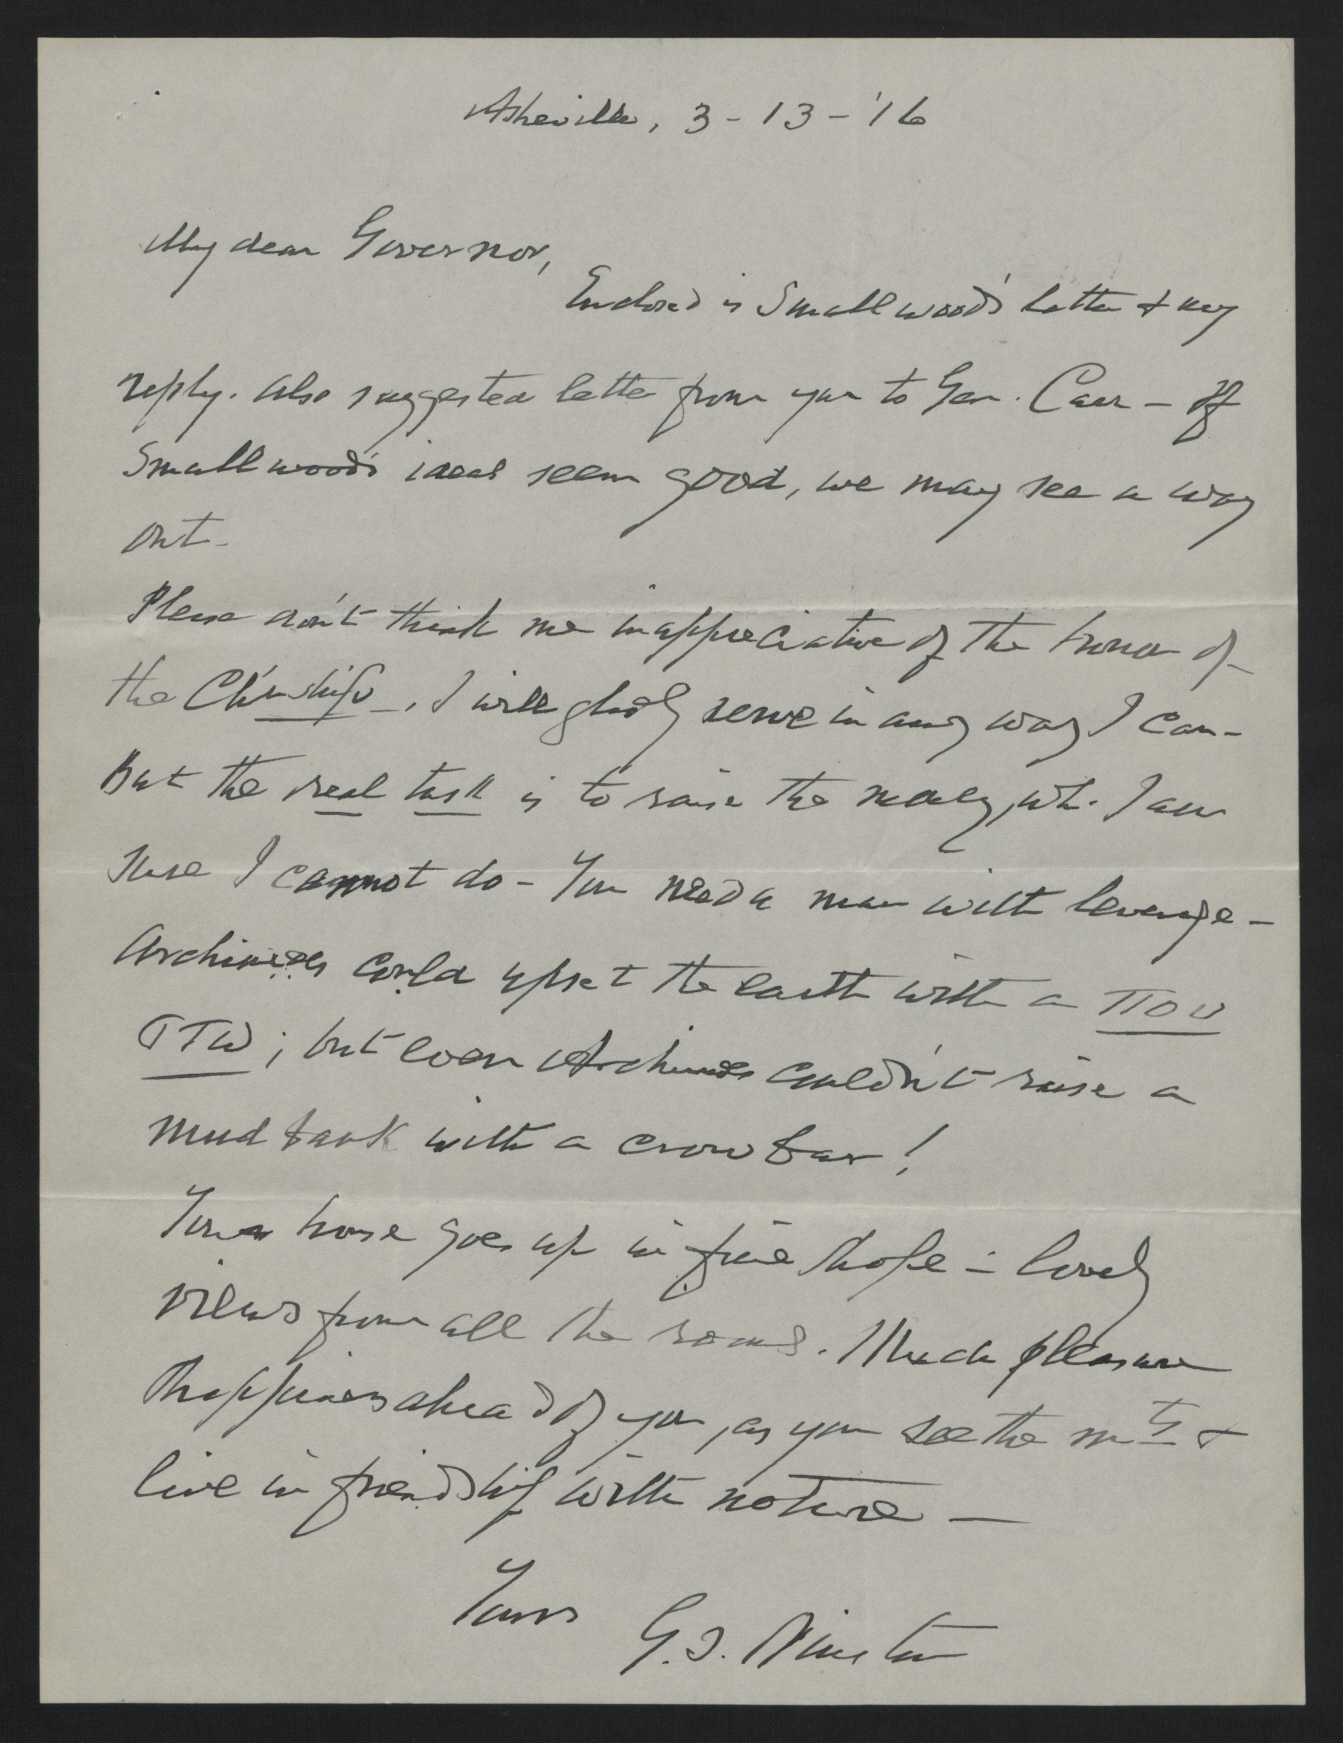 Asheville, 3-13-'16
My dear Governor,
Enclosed is Smallwood's letter & my
reply. Also suggested letter from you to Gen. Carr - If
Smallwood's ideas seem good, we may see a way
out-
Please don't think me inappreciative of the honor of
the Ch'nship -, I will gladly serve in any way I can-
But the real task is to raise the money, wh. I am
sure I cannot do - You need a man with leverage -
Archimedes could upset the earth with a που
στω; but even Archimedes couldn't raise a
mud bank with a crow bar!
Your house goes up in fine shape - lovely
views from all the rooms. Much pleasure
& happiness ahead of you, as you see the mts &
live in friendship with nature -
Yours
G.T. Winston